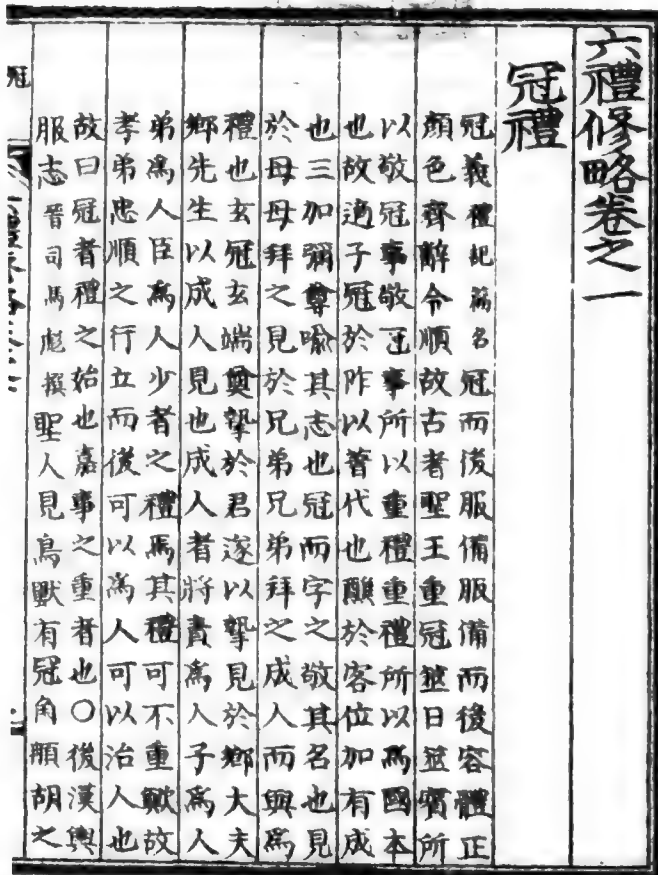 六禮修略卷之一
冠禮
冠義禮記篇名冠而後服備服備而後容體正
顏色齊辭令順故古者聖王重冠筮日筮賓所
以敬冠事敬冠事所以重禮重禮所以爲國本
也故適子冠於阼以著代也醮於客位加有成
也三加彌尊喩其志也冠而字之敬其名也見
於母母拜之見於兄弟兄弟拜之成人而與爲
禮也玄冠玄端奠摯於君遂以摯見於鄕大夫
鄕先生以成人見也成人者將責爲人子爲人
弟爲人臣爲人少者之禮焉其禮可不重歟故
孝弟忠順之行立而後可以爲人可以治人也
故曰冠者禮之始也嘉事之重者也○後漢輿
服志晉司馬彪撰聖人見鳥獸有冠角胡之
冠